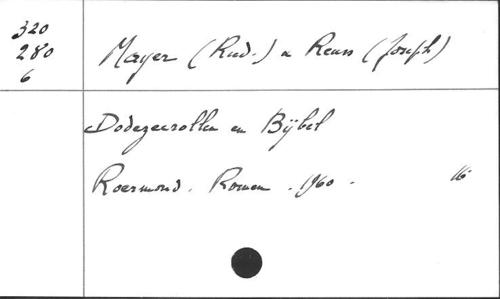 320
280
6
Mayer (Rud.) n Reuss (Joseph)
Dodezeerollen en Bijbel
Roermond. Romen. 1960. 16